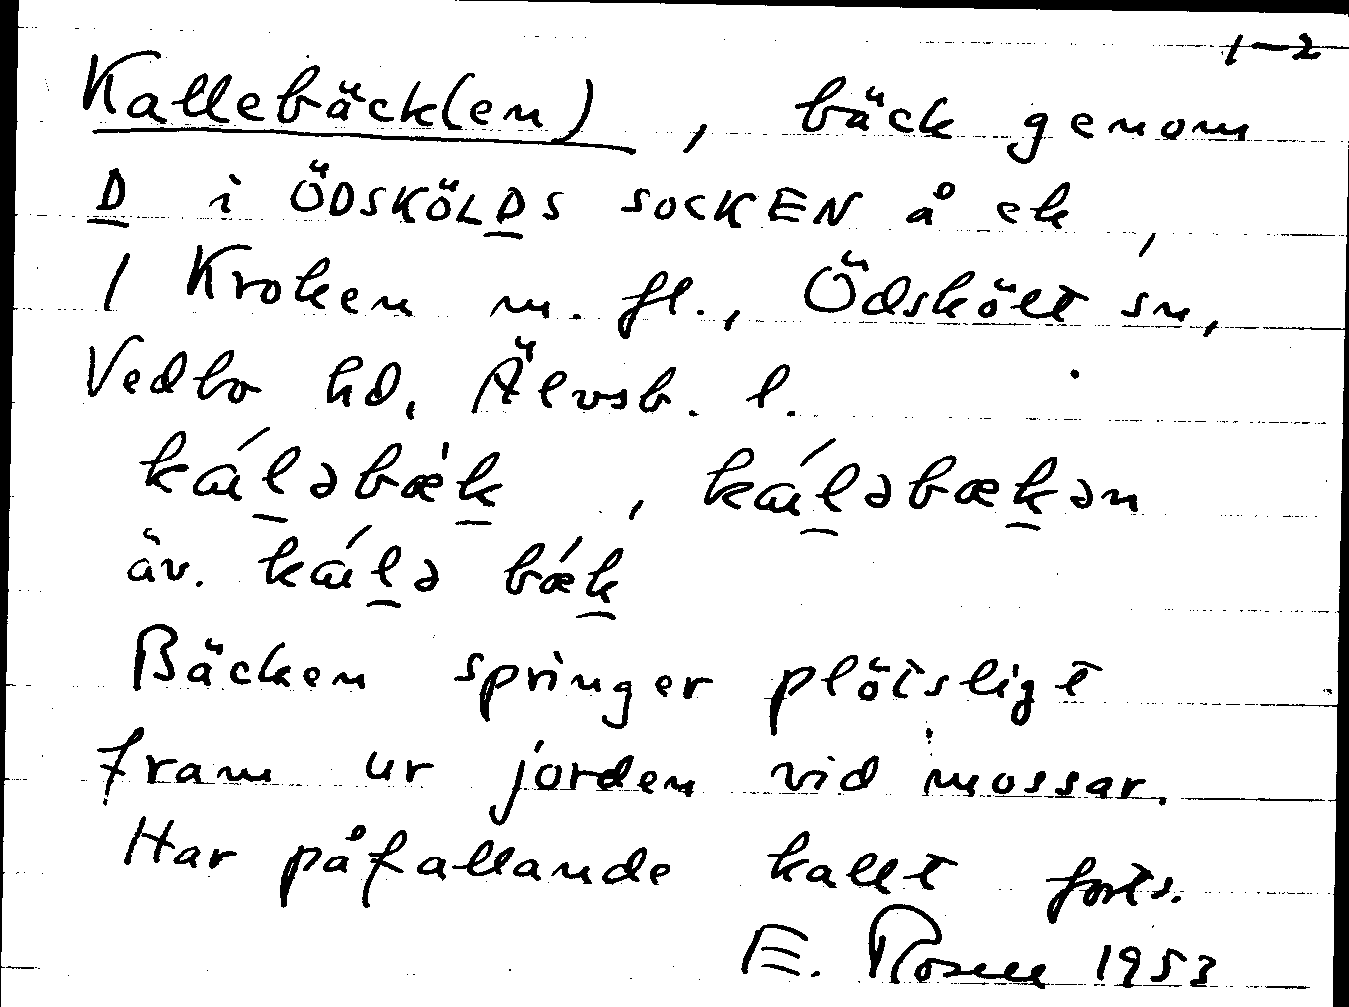 1-2
Kallebäck(en), bäck genom
D i ÖDSKÖLDS SOCKEN å ek,
/ Kroken m. fl., Ödskölt sn,
Vedbo hd. Älvsb. l.
ká̵ləbæ̀k, ká̵ləbækən
äv. ká̵lə bǽk
Bäcken springer plötsligt
fram ur jorden vid mossar.
Har påfallande kallt forts.
E. Rosell 1953